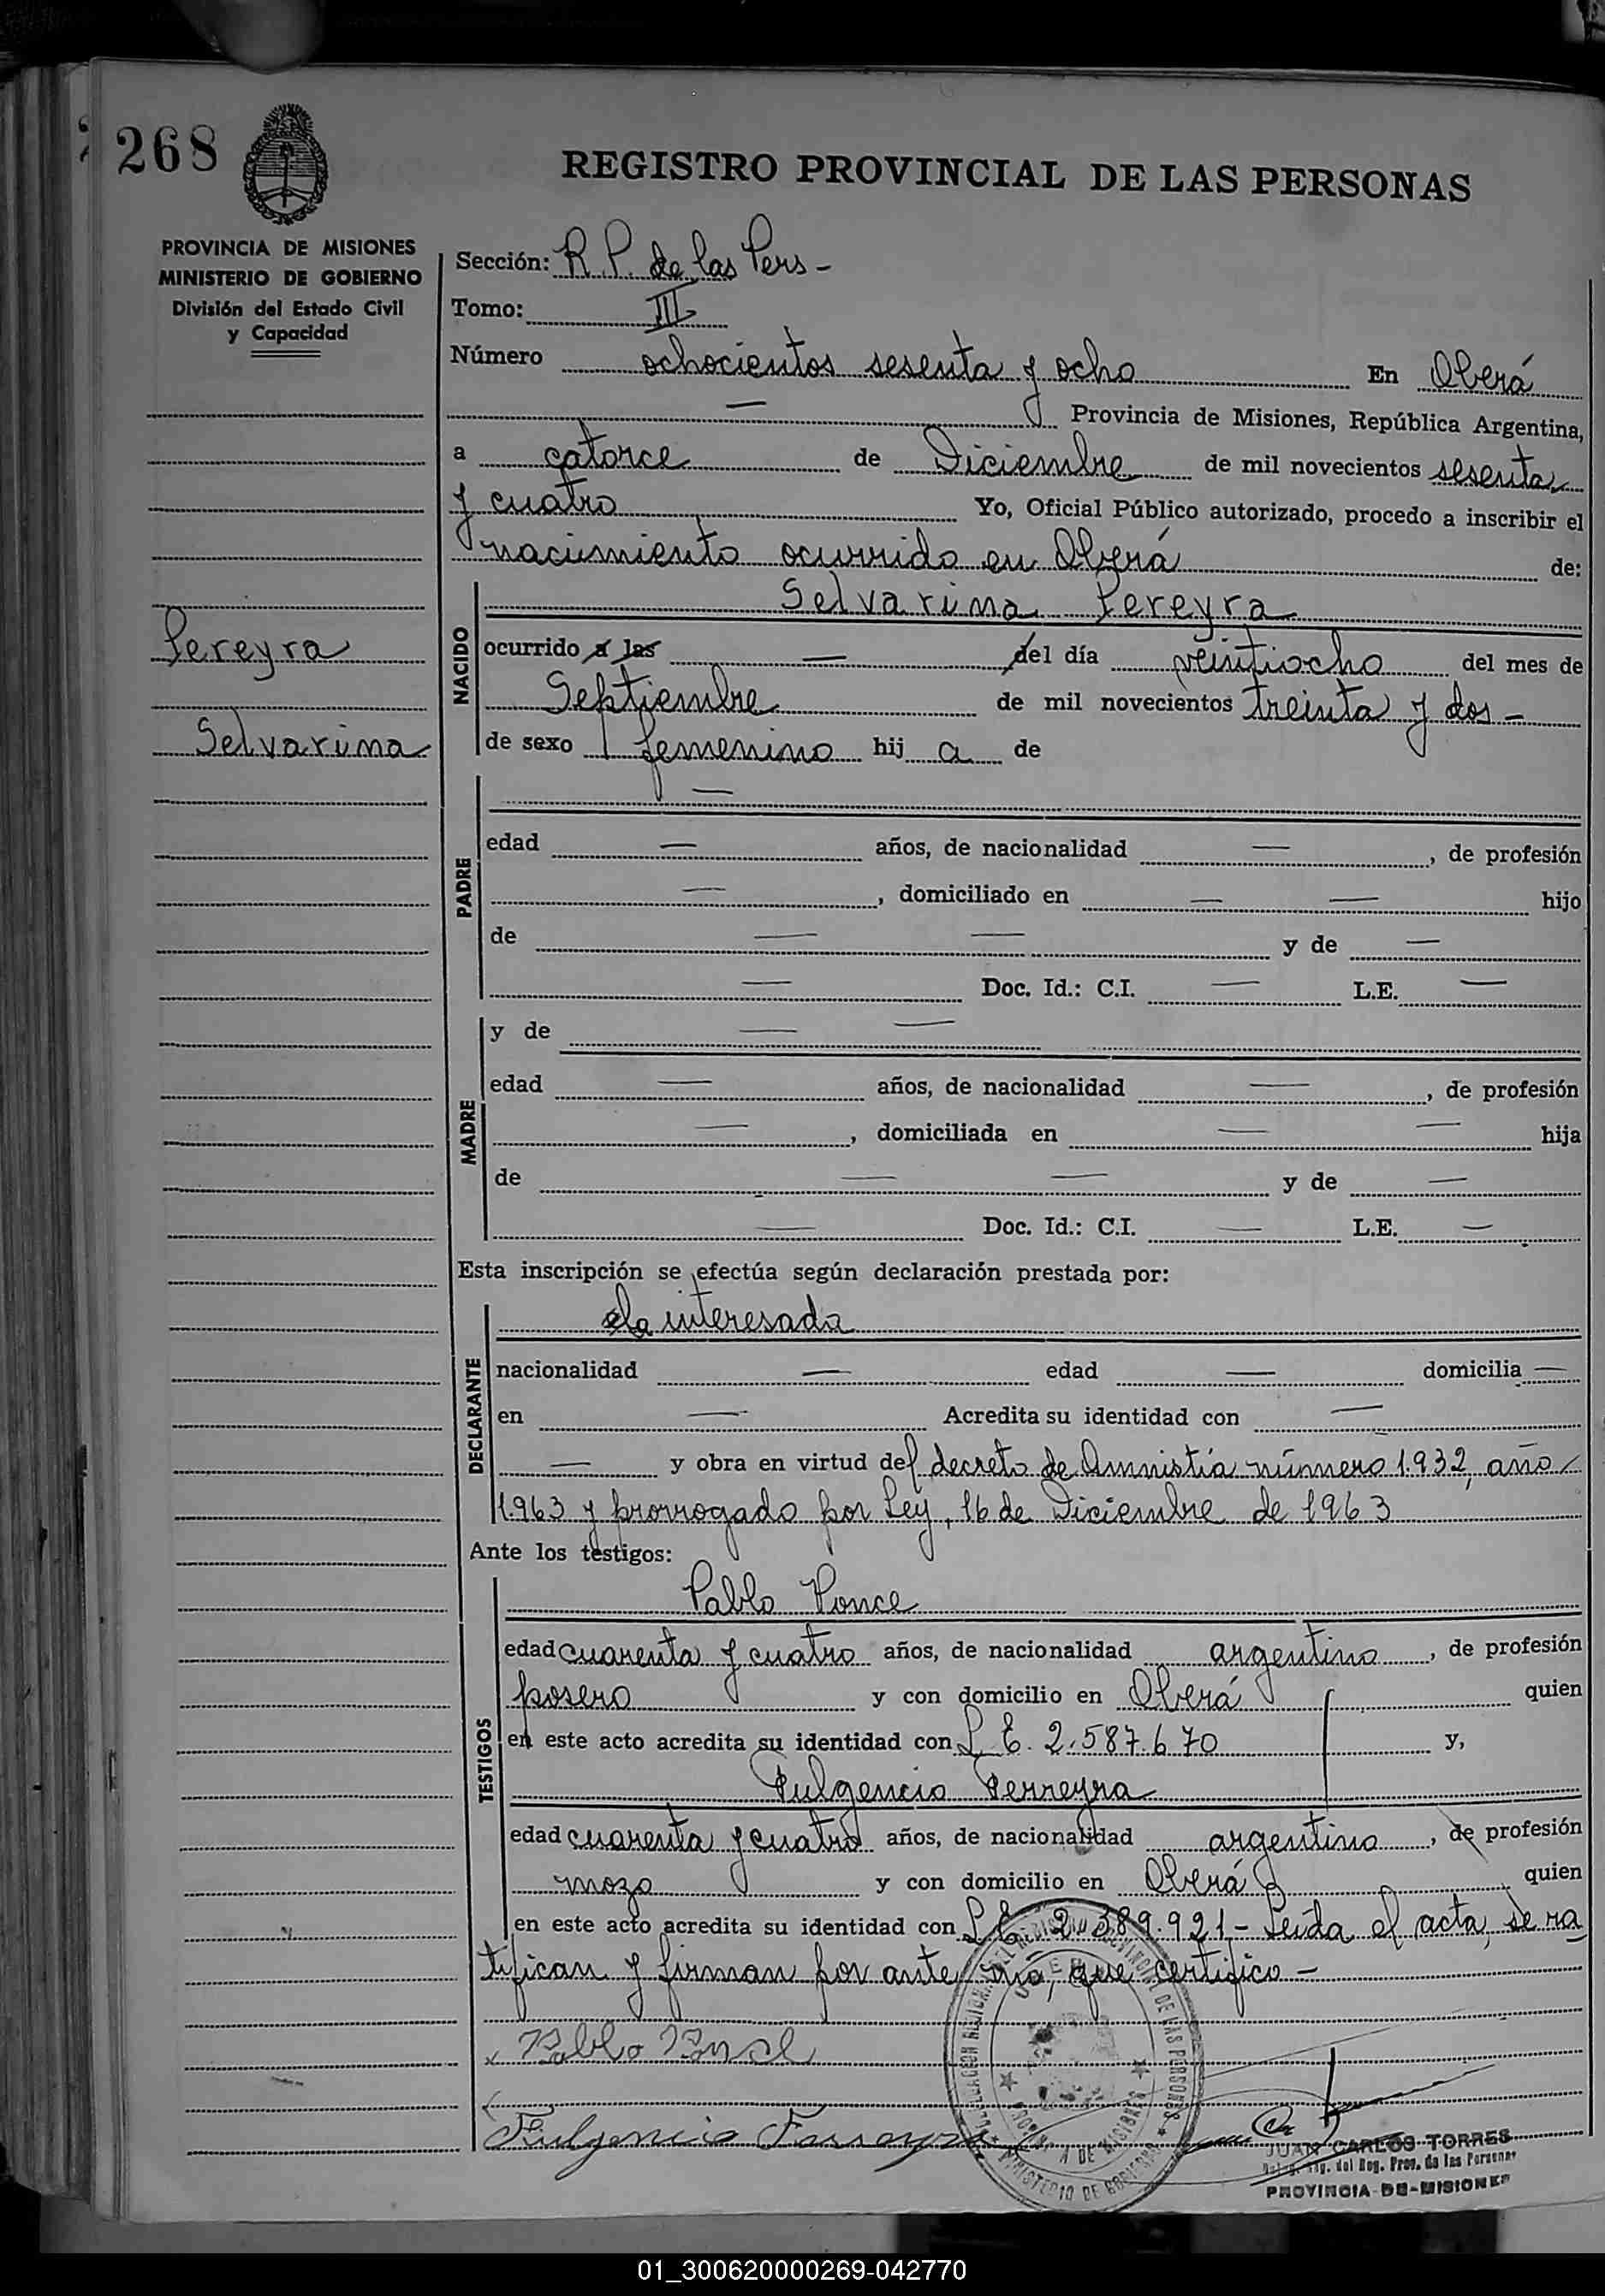 268
REGISTRO PROVINCIAL DE LAS PERSONAS
PROVINCIA DE MISIONES
MINISTERIO DE GOBIERNO
División del Estado Civil
y Capacidad
Sección: R. P. de las Pers -
Tomo: III
Número ochocientos sesenta y ocho En Oberá
— Provincia de Misiones, República Argentina,
a catorce de Diciembre de mil novecientos sesenta
y cuatro Yo, Oficial Público autorizado, procedo a inscribir el
nacimiento ocurrido en Oberá de:
NACIDO
Selvarima Pereyra
Pereyra
Selvarima
ocurrido a las — del día veintiocho del mes de
Septiembre de mil novecientos treinta y dos -
de sexo femenino hij a de
PADRE
—
edad — años, de nacionalidad — , de profesión
— , domiciliado en — — hijo
de — — y de —
— Doc. Id.: C.I. — L.E. —
MADRE
y de — —
edad — años, de nacionalidad — , de profesión
— , domiciliada en — — hija
de — — y de —
— Doc. Id.: C.I. — L.E. —
Esta inscripción se efectúa según declaración prestada por:
DECLARANTE
la interesada
nacionalidad — edad — domicilia —
en — Acredita su identidad con —
— y obra en virtud del decreto de Amnistía número 1.932, año
1.963 y prorrogado por Ley, 16 de Diciembre de 1963
Ante los testigos:
TESTIGOS
Pablo Ponce
edad cuarenta y cuatro años, de nacionalidad argentino , de profesión
posero y con domicilio en Oberá quien
en este acto acredita su identidad con L. E. 2.587.670 y,
Fulgencio Ferreyra
edad cuarenta y cuatro años, de nacionalidad argentino , de profesión
mozo y con domicilio en Oberá quien
en este acto acredita su identidad con L.E. 2.389.921 - Leída el acta, se ra
tifican y firman por ante mio, que certifico -
Pablo Ponce
Fulgencio Ferreyra
JUAN CARLOS TORRES
Reg. del Reg. Prov. de las Personas
PROVINCIA DE MISIONES
MINISTERIO DE GOBIERNO
01_300620000269-042770